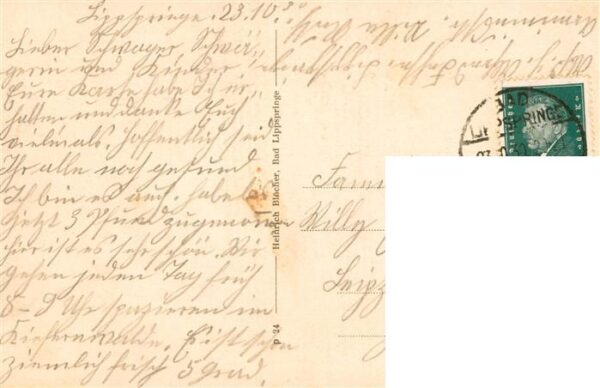 Lippspringe, 23.10.30
Lieber Schwager, Schwä-
gerin und Kinder!
Eure Karte habe ich er-
halten und danke Euch
vielmals. Hoffentlich seid
Ihr alle noch gesund
Ich bin es auch. habe
jetzt 3 Pfund zugenommen
hier ist es sehr schön. Wir
gehen jeden Tag früh
8-9 Uhr spazieren im
Kiefernwalde. Es ist schon
ziemlich frisch 5 Grad.
Heinrich Blöcher, Bad Lippspringe
P 24
BAD
LIPPSPRINGE
Fam
Willy
Leipz